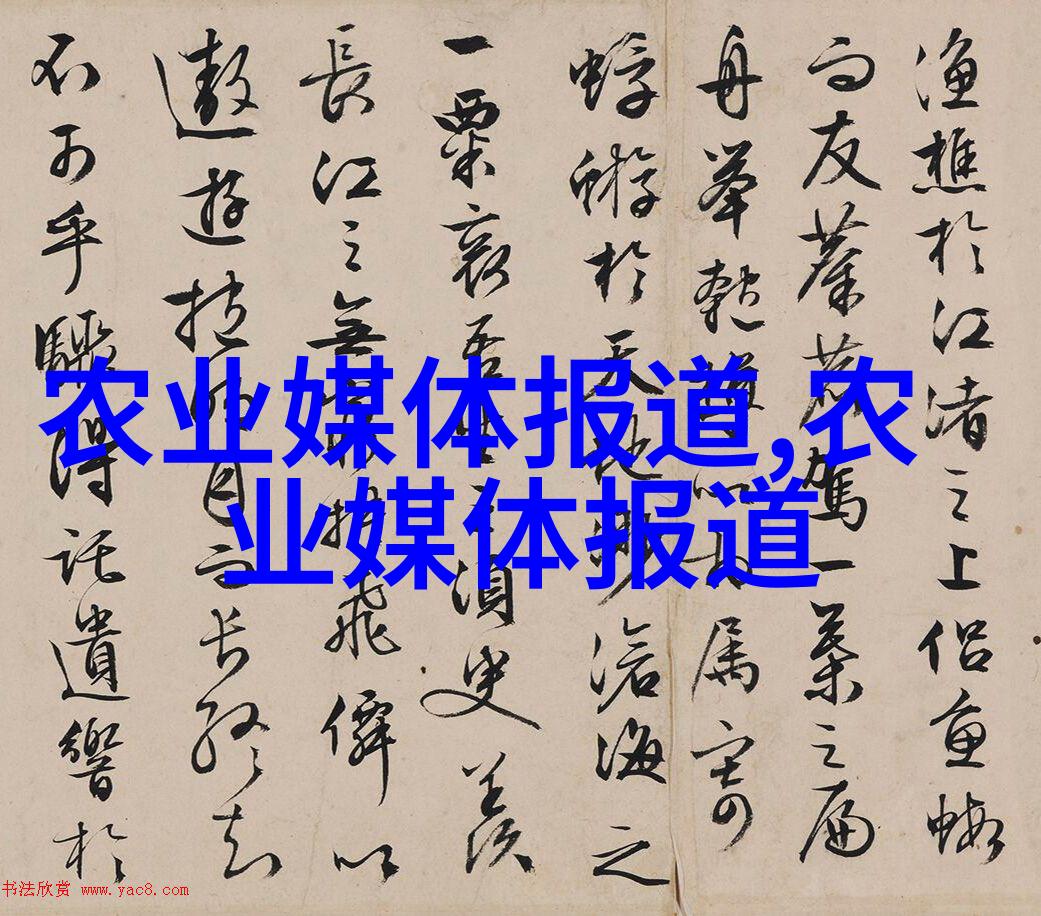 漁樵於江渚之上侣魚蝦
而友麋鹿駕一葉之扁
舟舉匏樽以相属寄
蜉蝣於天地渺滄海之
一粟哀吾生之須臾羡
長江之無窮挾飛僊以
遨遊抱明月而長終知
不可乎驟得託遺響於
农业媒体报道,农
业媒体报道
书法欣赏 www.yac8.com